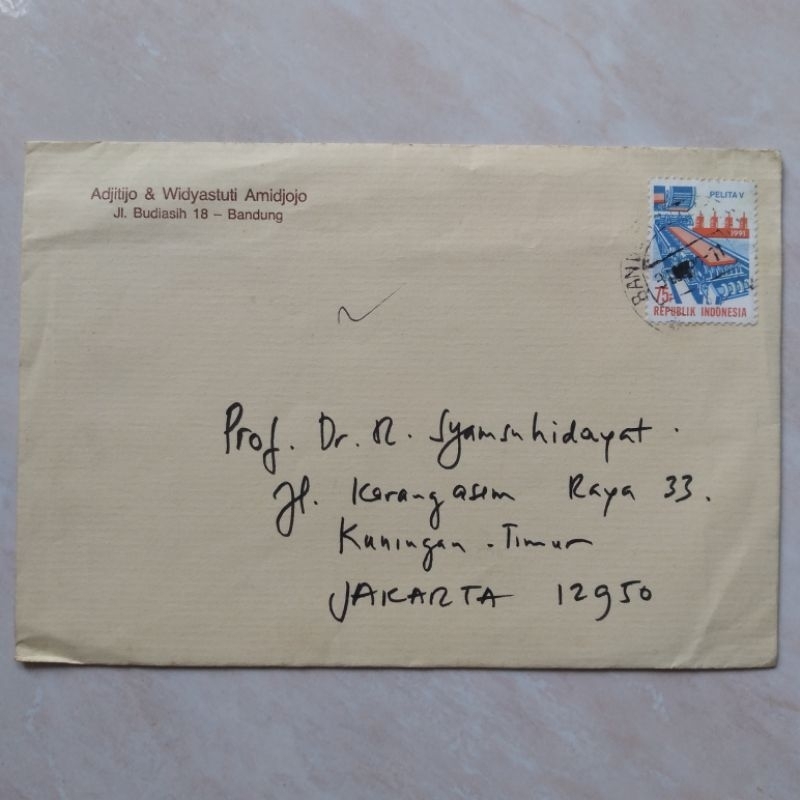 Adjitijo & Widyastuti Amidjojo
Jl. Budiasih 18 – Bandung
PELITA V
1991
75r
REPUBLIK INDONESIA
Prof. Dr. R. Syamsuhidayat.
Jl. Karangasem Raya 33.
Kuningan - Timur
JAKARTA 12950